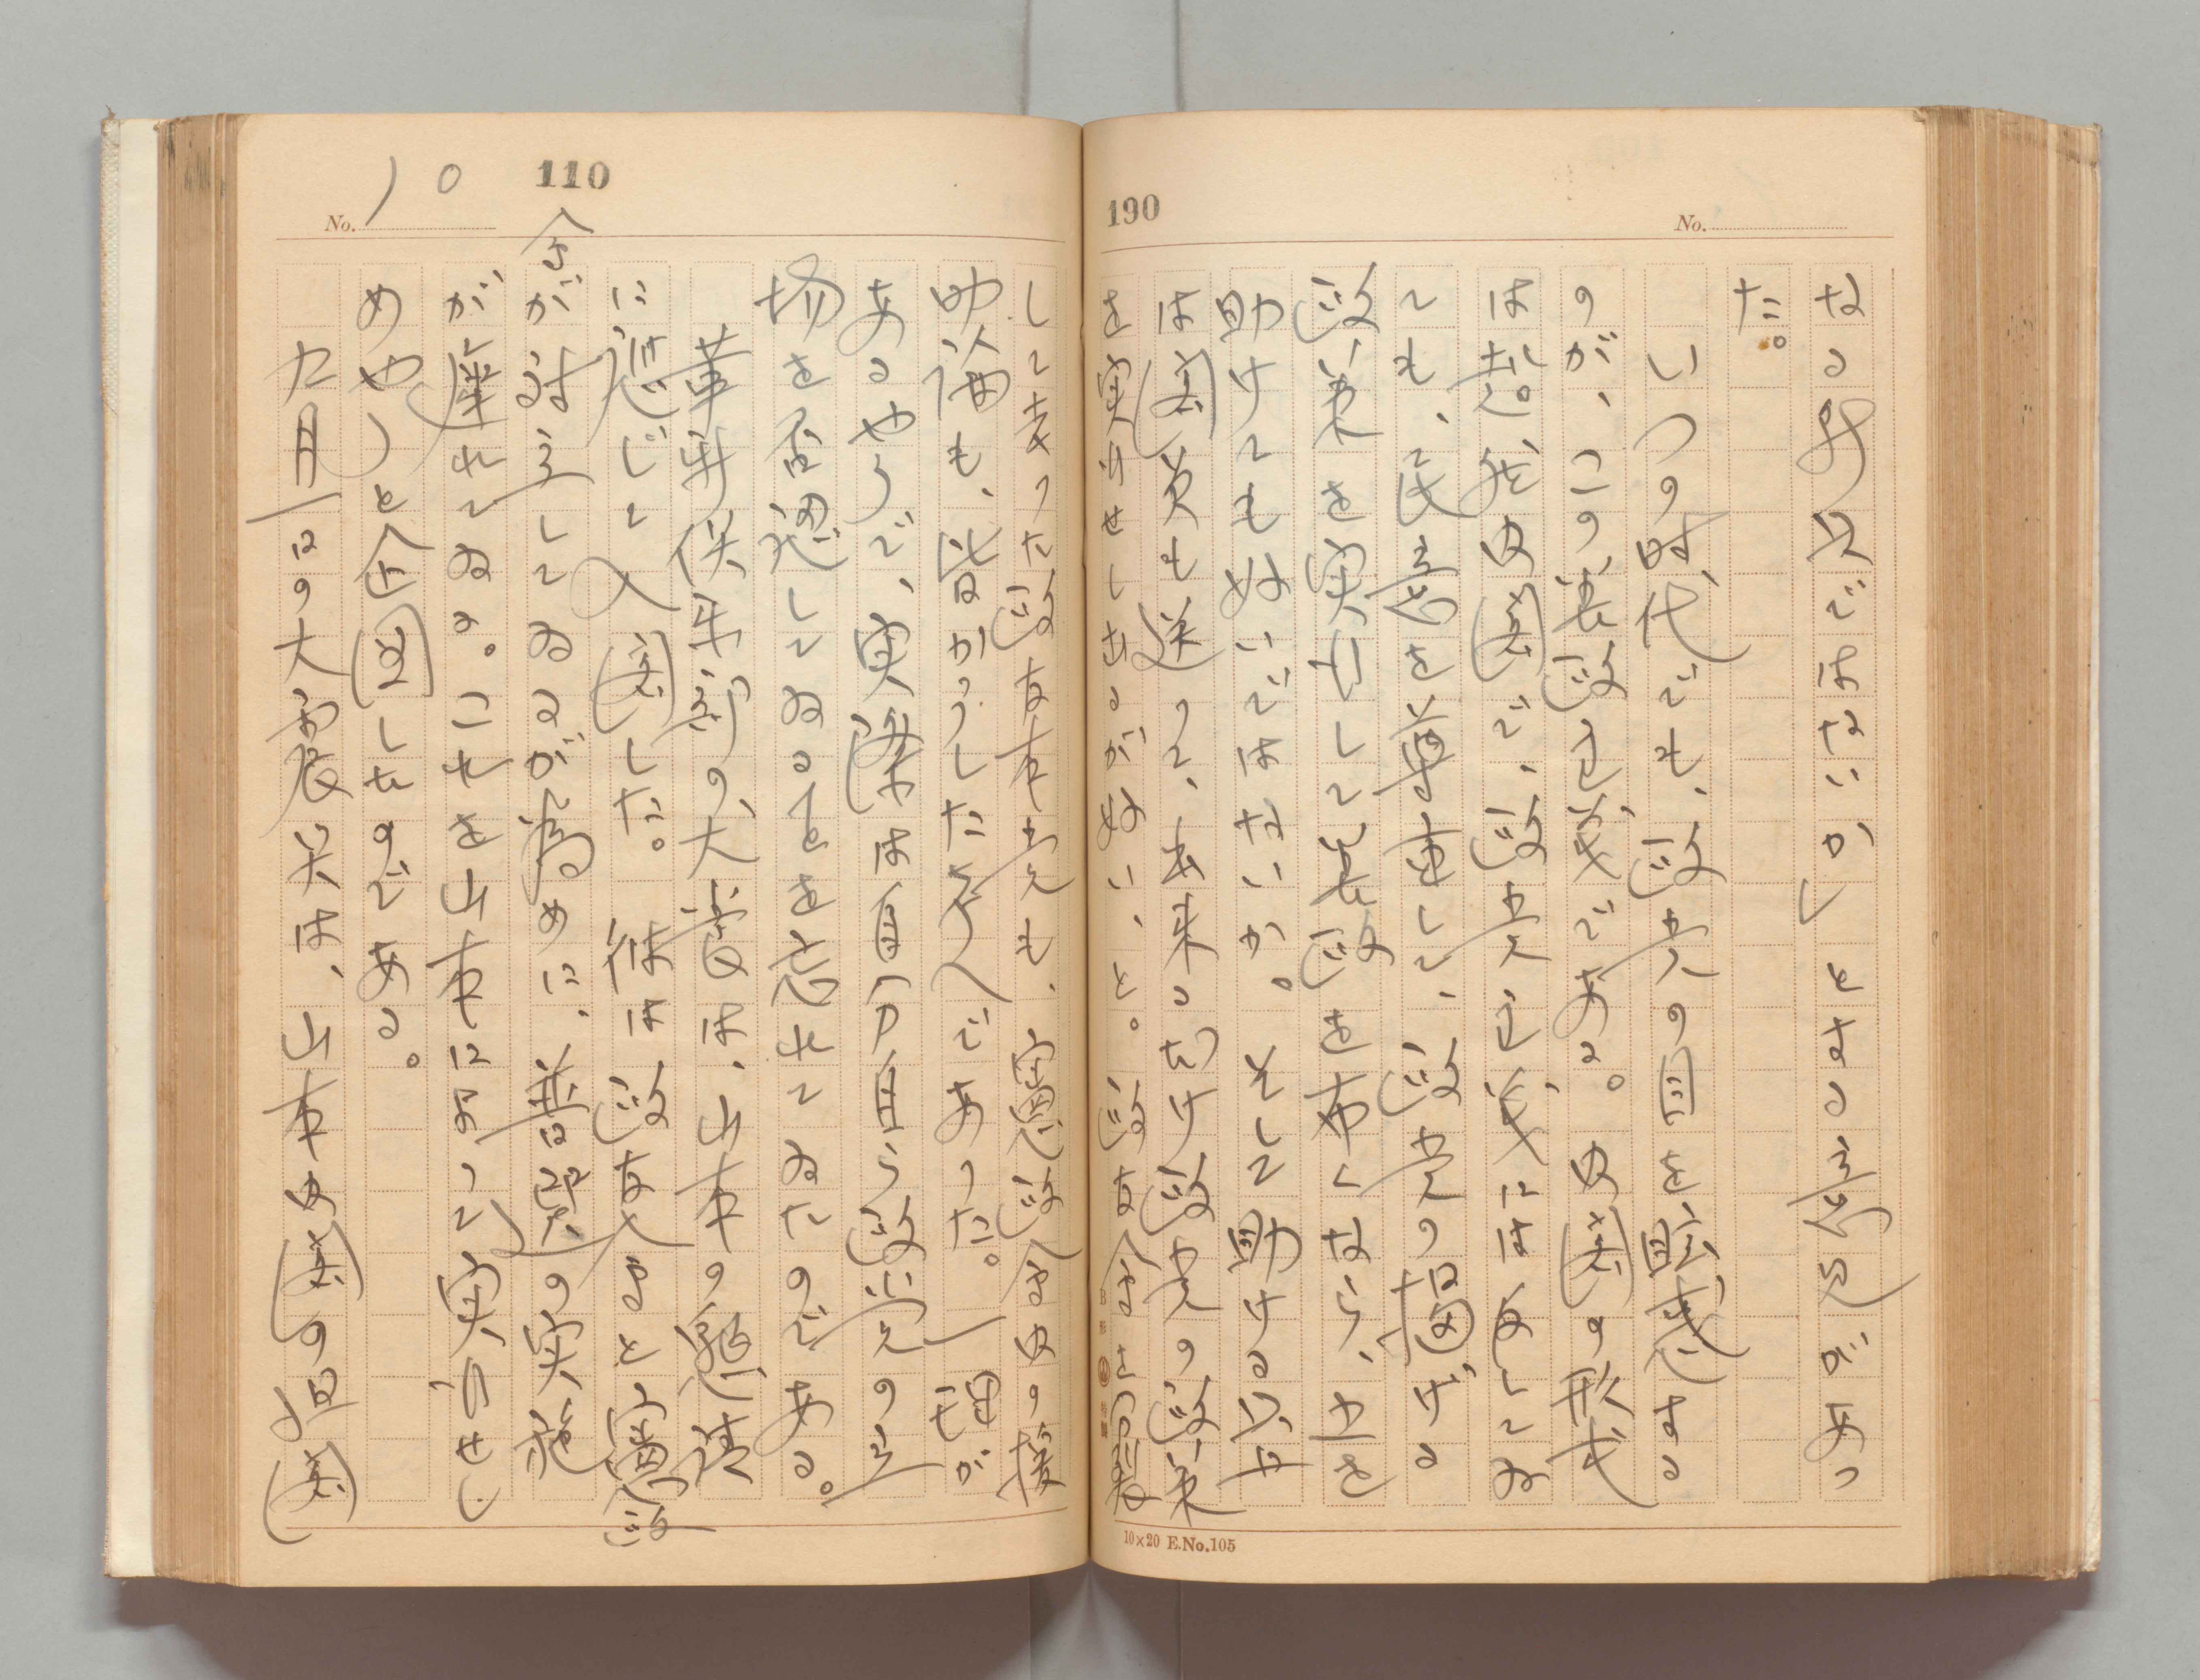 なる ではないか」とする意見があつ
た。
いつの時代でも、政党の目を眩惑する
のが、この、 主義である。内閣の形式
は超然内閣で、政党主義には してゐ
ても、民意を尊重して、政党の掲げる
政策を実行して善政を布くなら、之を
助けても好いではないか。そして助ける以上
は閣員も送つて、出来るだけ政党の政策
を実 せしめるが好い、と。政友会を
して去つた政友本党も、 政友会内の援
助論も、皆かうした考へであつた。 理が
あるやうで、実際は自分自ら政党の立
場を否認してゐることを忘れてゐたのである。
革新倶楽部の犬養は、山本の懇請
に応じて入閣した。彼は政友会と憲政
会が対立してゐるが為めに、普選の実施
が遅れてゐる。これを山本によつて実 せし
めやうと企図したのである。
九月一日の大震災は、山本内閣の組閣
No. 10
110
190
No.
10×20 E.No.105